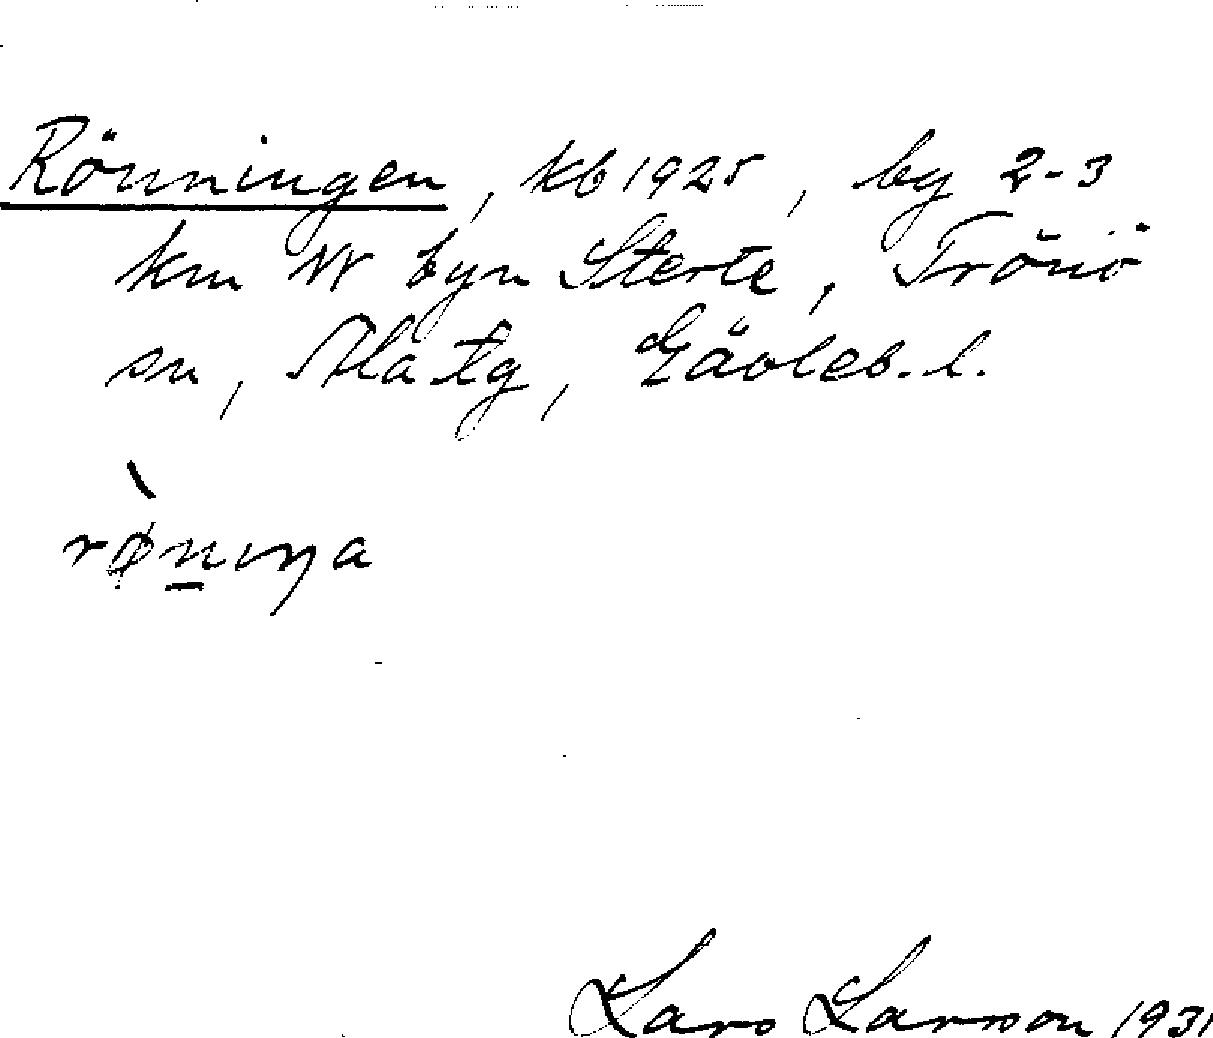 Rönningen, kb 1925, by 2-3
km W byn Sterte, Trönö
sn, Ala tg, Gävleb. l.
rø̀n̲iŋa
Lars Larsson 1931